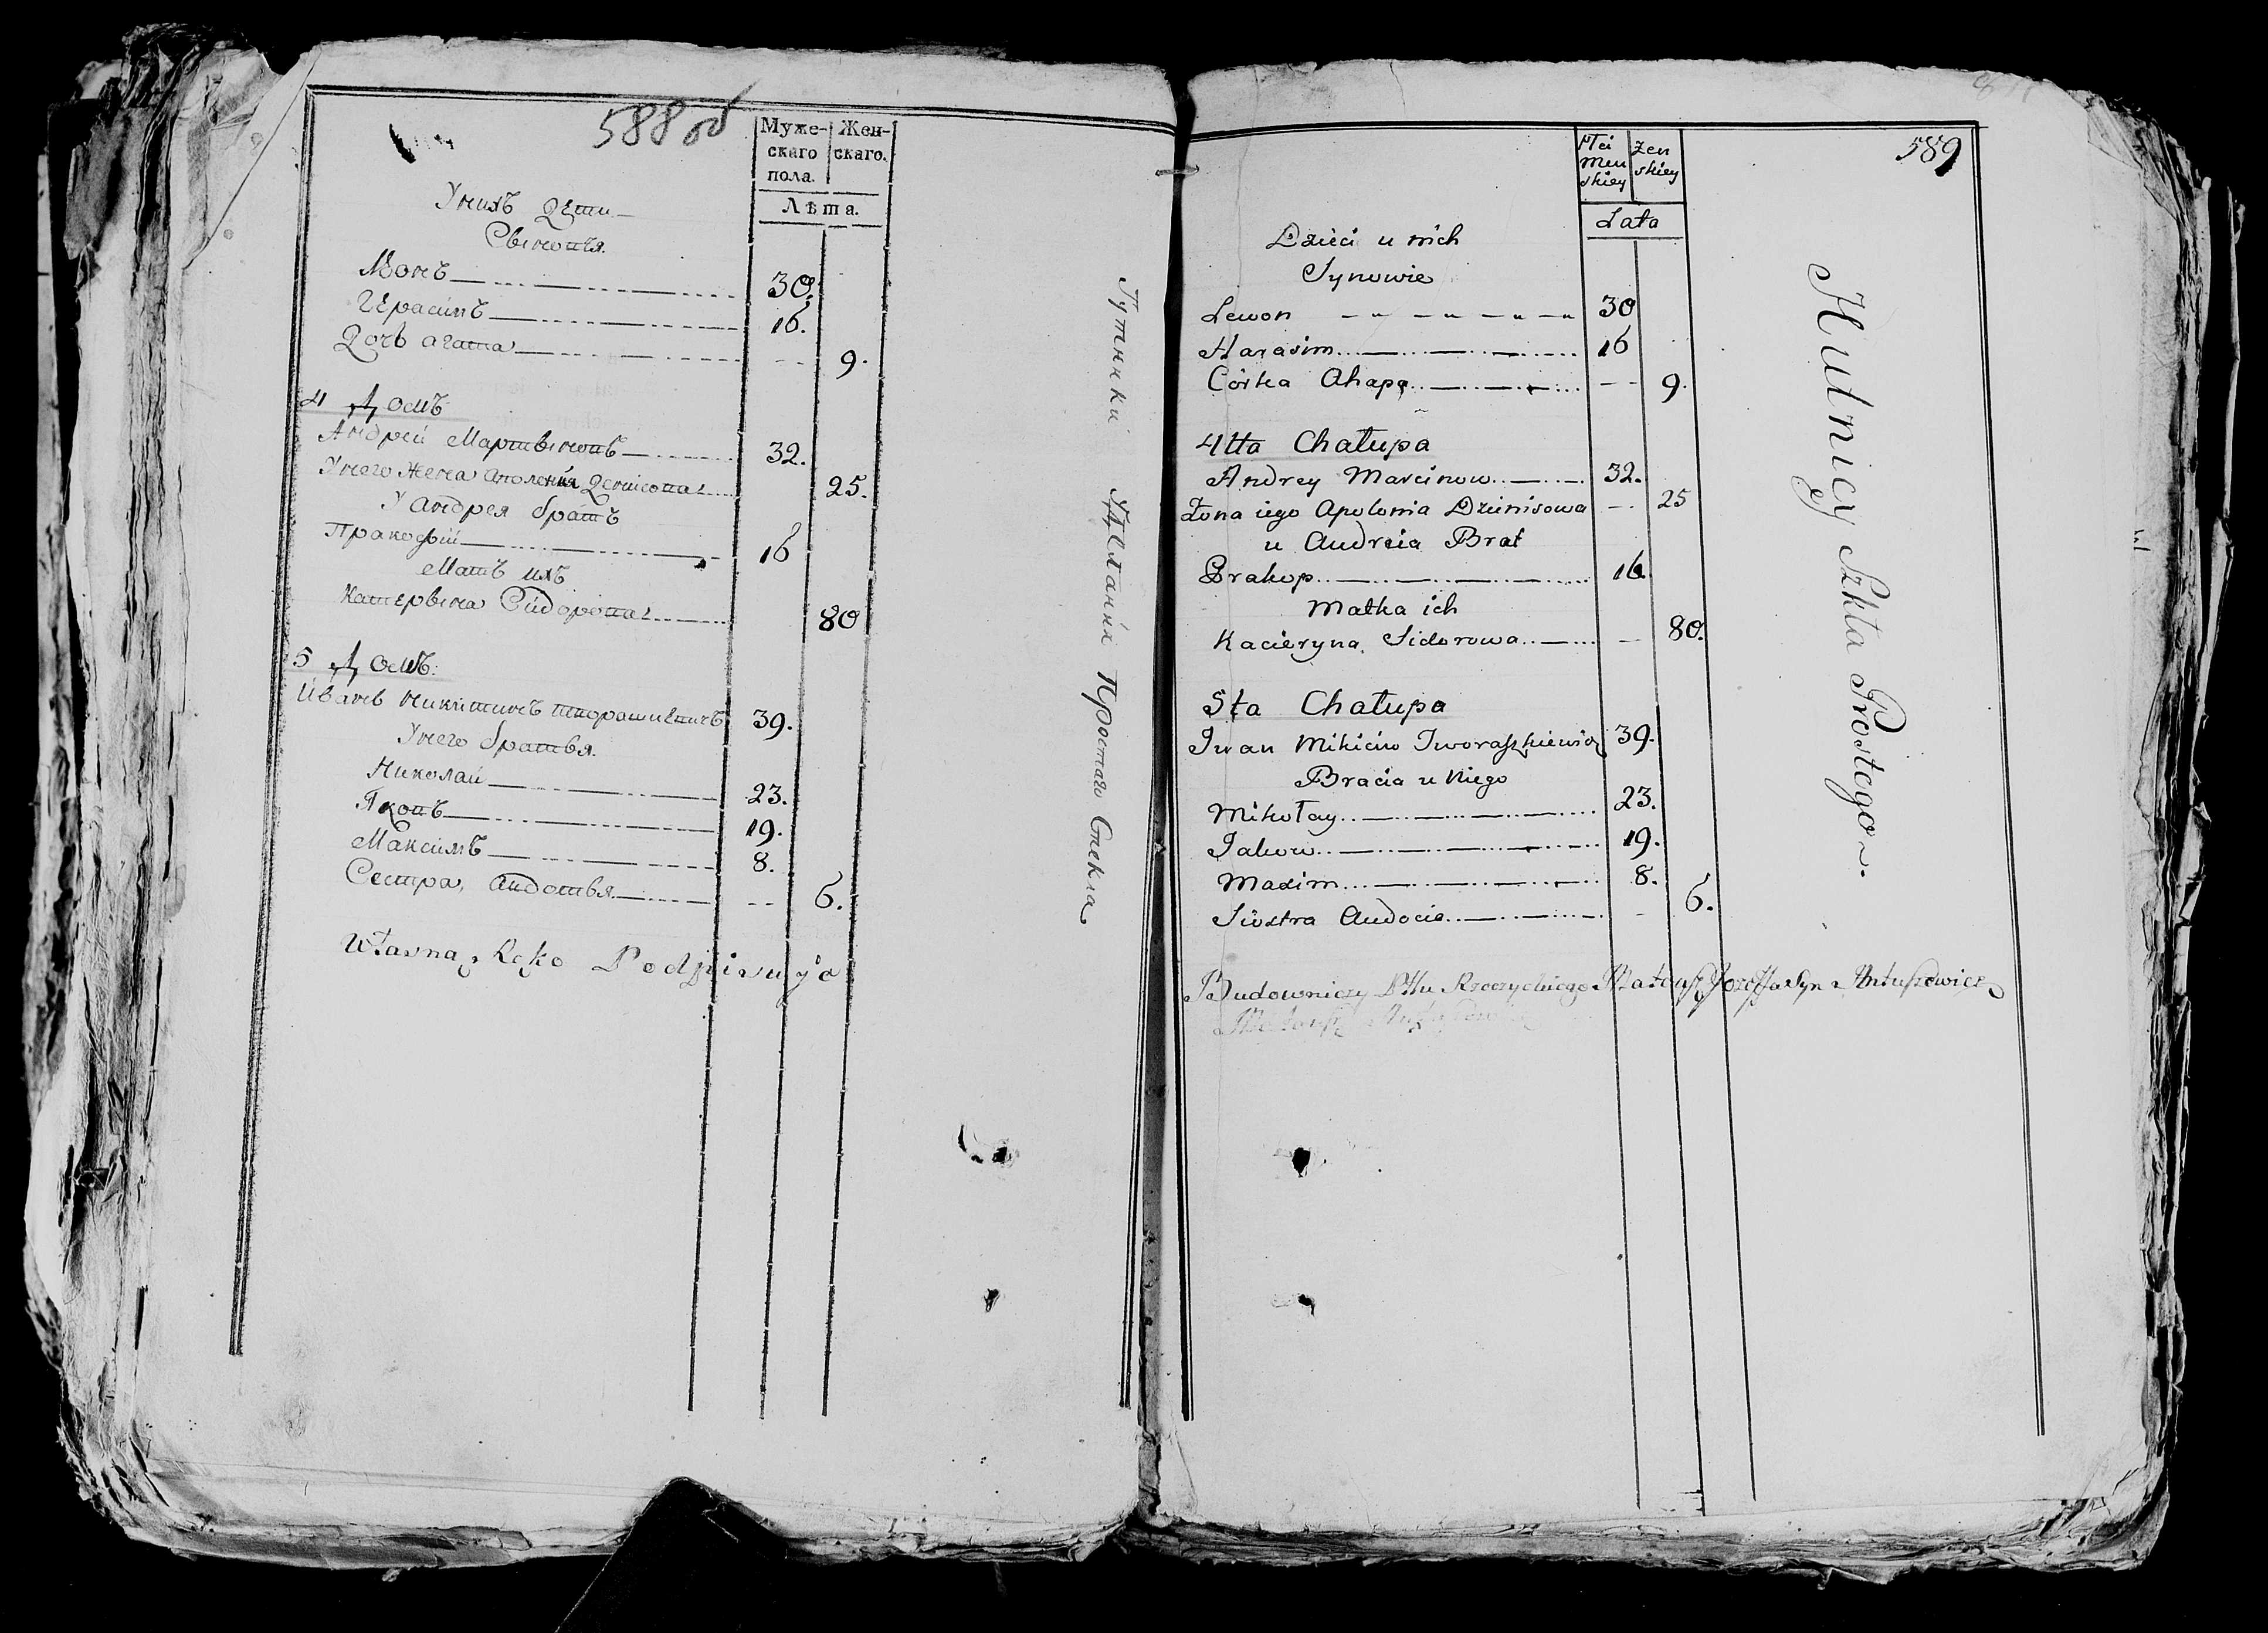 588 об
Муже-
скаго
пола.
Жен-
скаго.
Лѣта.
Унихъ Дети
Сыновья
30.
Герасимъ 16.
Дочь агата 9.
4 Домъ
Андрей Мартыновъ 32.
Унего Жена Аполения Денисова 25.
У Андрея братъ
Пракофiй 16
Мать ихъ
Катерына Сидорова 80
5 Домъ:
Иванъ Никитинъ 39.
Унего братья.
Николай 23.
Яковъ 19.
Максимъ 8.
Сестра, Авдотья 6.
Własną Ręką Podpisuję
Гутники Простаго Стекла
589
Płci
Męz
skiey
Żeń
skiey
Lata
Dzieci u nich
Synowie
Lewon 30
Harasim 16
Córka Ahapa 9.
4tta Chałupa
Andrey Marcinow 32.
Żona iego Apolonia Dzienisowa 25
u Andreia Brat
Prakop 16.
Matka ich
Kacieryna Sidorowa 80.
5ta Chałupa
Iwan Mikicin Tworaszkiewicz 39.
Bracia u Niego
Mikołay 23.
Jakow 19.
Maxim 8.
Siostra Audocia 6.
Budowniczy Pttu Rzeczyckiego Mateusz Jozeffa Syn Antuszewicz
Hutnicy Szkła Prostego